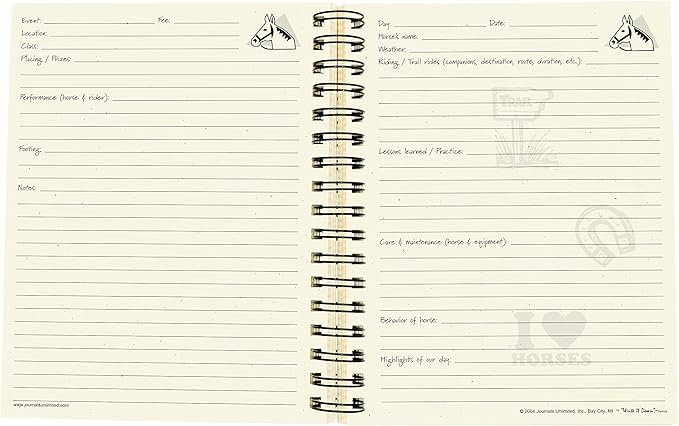 Event: Fee:
Location:
Class:
Placing / Prizes:
Performance (horse & rider):
Footing:
Notes:
www.journalsunlimited.com
Day Date:
Horse's name:
Weather:
Riding / Trail rides (companions, destination, route, duration, etc.):
TRAIL
Lessons learned / Practice:
Care & maintenance (horse & equipment)
Behavior of horse:
I
HORSES
Highlights of our day:
© 2004 Journals Unlimited, Inc., Bay City, MI ~"Write it Down!"~ Series